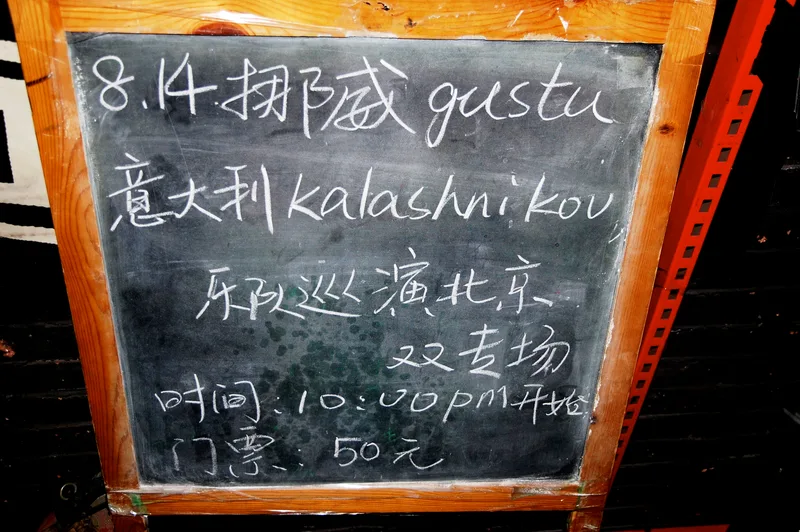 8.14.挪威gustu
意大利kalashnikov
乐队巡演北京
双专场
时间:10:00pm开始
门票:50元